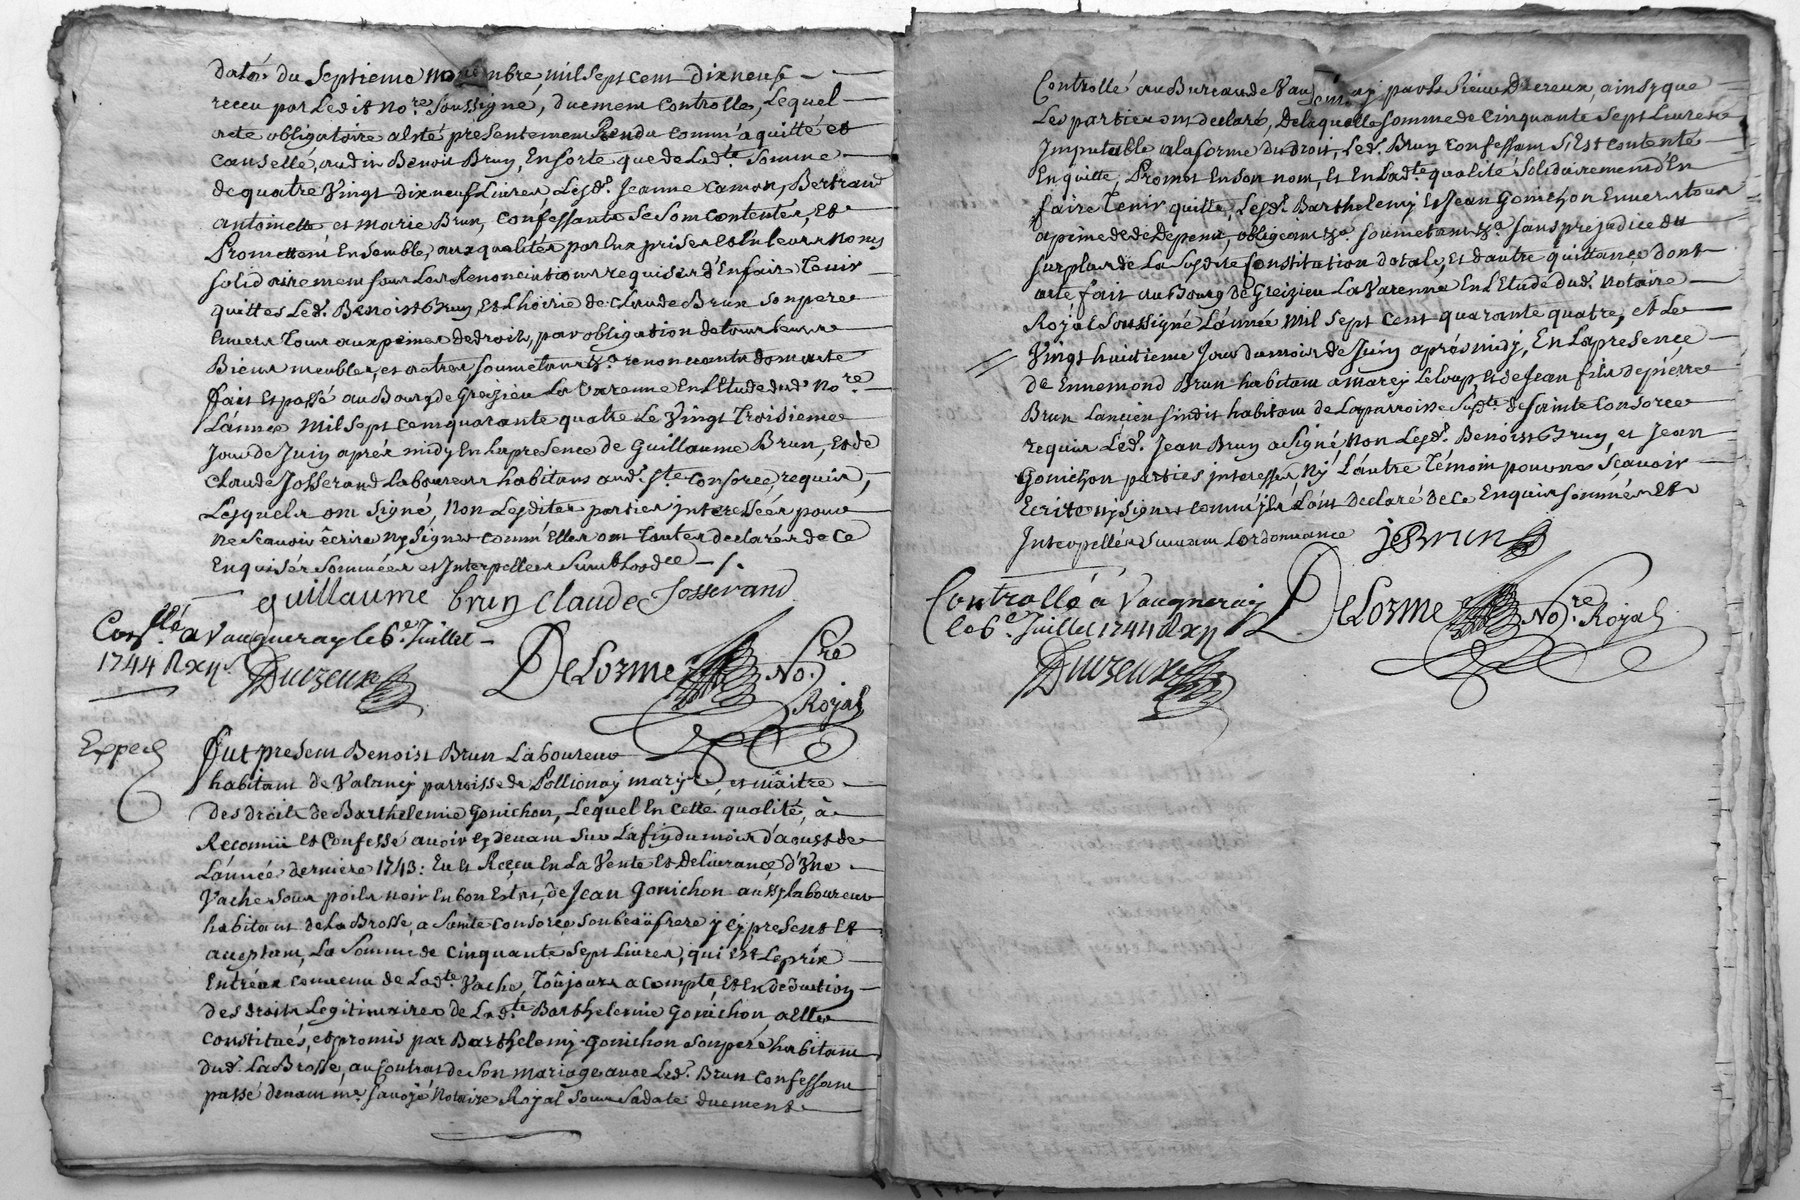 datté du Septieme novembre mil sept cent dixneuf
receu par Ledit nore. soussigné, duement controllé, Lequel
acte obligatoire a esté presentement Rendu comm'aquitté et
cansellé, audit Benoit Brun, Ensorte que de Ladte. Somme
de quatre Vingt dix neuf Livres Lesds. Jeanne Camon, Bertrand
antoinette et marie Brun, confessants Se Sont contentés, Et
Promettent Ensemble, aux qualités par Eux prises et En leurs noms
solidairement sous Les Renonciations requises d'En faire Tenir
quittes Led. Benoist Brun, Et Lhoirie de Claude Brun son pere
Envers Tous aux peines de droit, par obligation de tous leurs
Biens meubles, et autres soumetants &a. renoncants dont acte
fait et passé au Bourg de Greizieu La Varenne En L'Etude dud. nore.
L'année mil sept cent quarante quatre Le Vingt Troisieme
Jour de Juin aprés midy En La presence de Guillaume Brun, Et de
Claude Josserand Laboureurs habitans aud. Ste. Consorce, requis,
Lesquels ont signé, Non Lesdites parties jnteressées pour
ne scavoir écrire ny signer comm'Elles ont Toutes declaré de ce
Enquises sommées et Interpellées suivt. Lordce
guillaume brun Claude Josserand
Conllé a Vaugneray le 6e. Juillet
1744 R xij s
Duvreux
DeLorme Nore
Royal
Exped
fut present Benoist Brun Laboureur
habitant de Valancy parroisse de Pollionay mary, et maitre
des droits de Barthelemie Gonichon, Lequel En cette qualité, à
Reconnü Et Confessé avoir cy devant sur La fin du mois d'aoust de
L'année derniere 1743: Eu Et Receu En La Vente Et delivrance, d'Vne
Vache sous poils noir En bon Estat, de Jean Gonichon aussy laboureur
habitant de La Brosse, a Sainte Consorce son beaüfrere y cy present Et
aceptant, La Somme de cinquante Sept Livres, qui Est Le prix
Entr'eux convenu de Ladte. Vache, Toûjours a compte, Et En deduction
des droits Legitimaires de Ladte. Barthelemie Gonichon, a Elle
constitués, et promis par Barthelemy Gonichon son pere habitant
dud. La Brosse, au Contrat de Son mariage avec Led. Brun confessant
passé devant me. Savoje Notaire Royal sous Sa date duement
Controllé au Bureau de Vaugneray par Le Sieur Duvreux, ainsy que
Les parties ont declaré, de laquelle somme de Cinquante Sept Livres
Imputable a la forme du droit, Led. Brun confessant s'Est contenté
En quitte, Promet En son nom, Et En Ladte. qualité Solidairement d'En
faire Tenir quittes, Lesds. Barthelemy Et Jean Gonichon Envers tous
a peine de de Depens, obligeant &a. soumetant &a. sans prejudice du
surplus de La susdite Constitution dotale, et d'autre quittance, dont
acte fait au Bourg de Greizieu La Varenne En L'Etude dud. Notaire
Royal soussigné L'année mil sept cent quarante quatre, et Le
Vingt huitieme jour du mois de Juin aprés midy, En La presence
de Ennemond Brun habitant a marcy Le Loup, et de Jean fils de pierre
Brun Lancien sindit habitant de La parroisse susdte. de sainte Consorce
requis Led. Jean Brun a signé, Non Lesds. Benoist Brun, et Jean
Gonichon parties jnteressés, Ny L'autre Témoin pour ne Scavoir
Ecrire ny signer comm'jls L'ont declaré de ce Enquis sommés Et
Interpellés suivant L'ordonnance
jBrun
Controllé á Vaugneray
le 6e. Juillet 1744 R xij s
DeLorme Nore. Royal
Duvreux